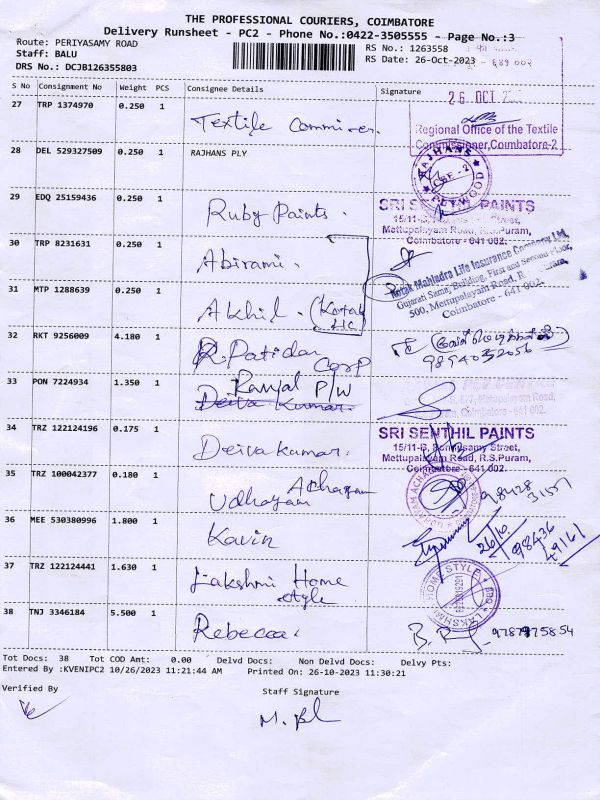 THE PROFESSIONAL COURIERS, COIMBATORE
Delivery Runsheet - PC2 - Phone No.:0422-3505555 - Page No.:3
Route: PERIYASAMY ROAD
RS No.: 1263558
Staff: BALU
RS Date: 26-Oct-2023
DRS No.: DCJB126355803
S No Consignment No Weight PCS Consignee Details Signature
26 OCT
27 TRP 1374970 0.250 1 Textile
Regional Office of the Textile
Commissioner, Coimbatore-2
28 DEL 529327509 0.250 1 RAJHANS PLY
RAJHANS
CBE - 2
PLYWOOD
29 EDQ 25159436 0.250 1 Ruby Paints.
SRI SENTHIL PAINTS
15/11-B, Street,
Mettupalayam Road, R.S.Puram,
Coimbatore - 641 002.
30 TRP 8231631 0.250 1 Abirami.
Kotak Mahindra Life Insurance Company Ltd,
Gujarati Samaj Building, First and Second Floor,
500, Mettupalayam Road, R
Coimbatore - 641 002.
31 MTP 1288639 0.250 1 Akhil. (Kotak
LIC
32 RKT 9256009 4.180 1 R. Patidar
Corp
33 PON 7224934 1.350 1 P/W
Deiva Kumar.
Mettupalayam Road,
Coimbatore - 641 002.
34 TRZ 122124196 0.175 1 Deiva kumar.
SRI SENTHIL PAINTS
15/11-B, Ponnusamy Street,
Mettupalayam Road, R.S.Puram,
Coimbatore - 641 002.
35 TRZ 100042377 0.180 1 Udhayam Achagam
98428
31557
36 MEE 530380996 1.800 1 Kavin
26/10
98436
49161
37 TRZ 122124441 1.630 1 Lakshmi Home
style
LAKSHMI HOME STYLE
38 TNJ 3346184 5.500 1 Rebecca.
Tot Docs: 38 Tot COD Amt: 0.00 Delvd Docs: Non Delvd Docs: Delvy Pts:
Entered By :KVENIPC2 10/26/2023 11:21:44 AM Printed On: 26-10-2023 11:30:21
Verified By Staff Signature